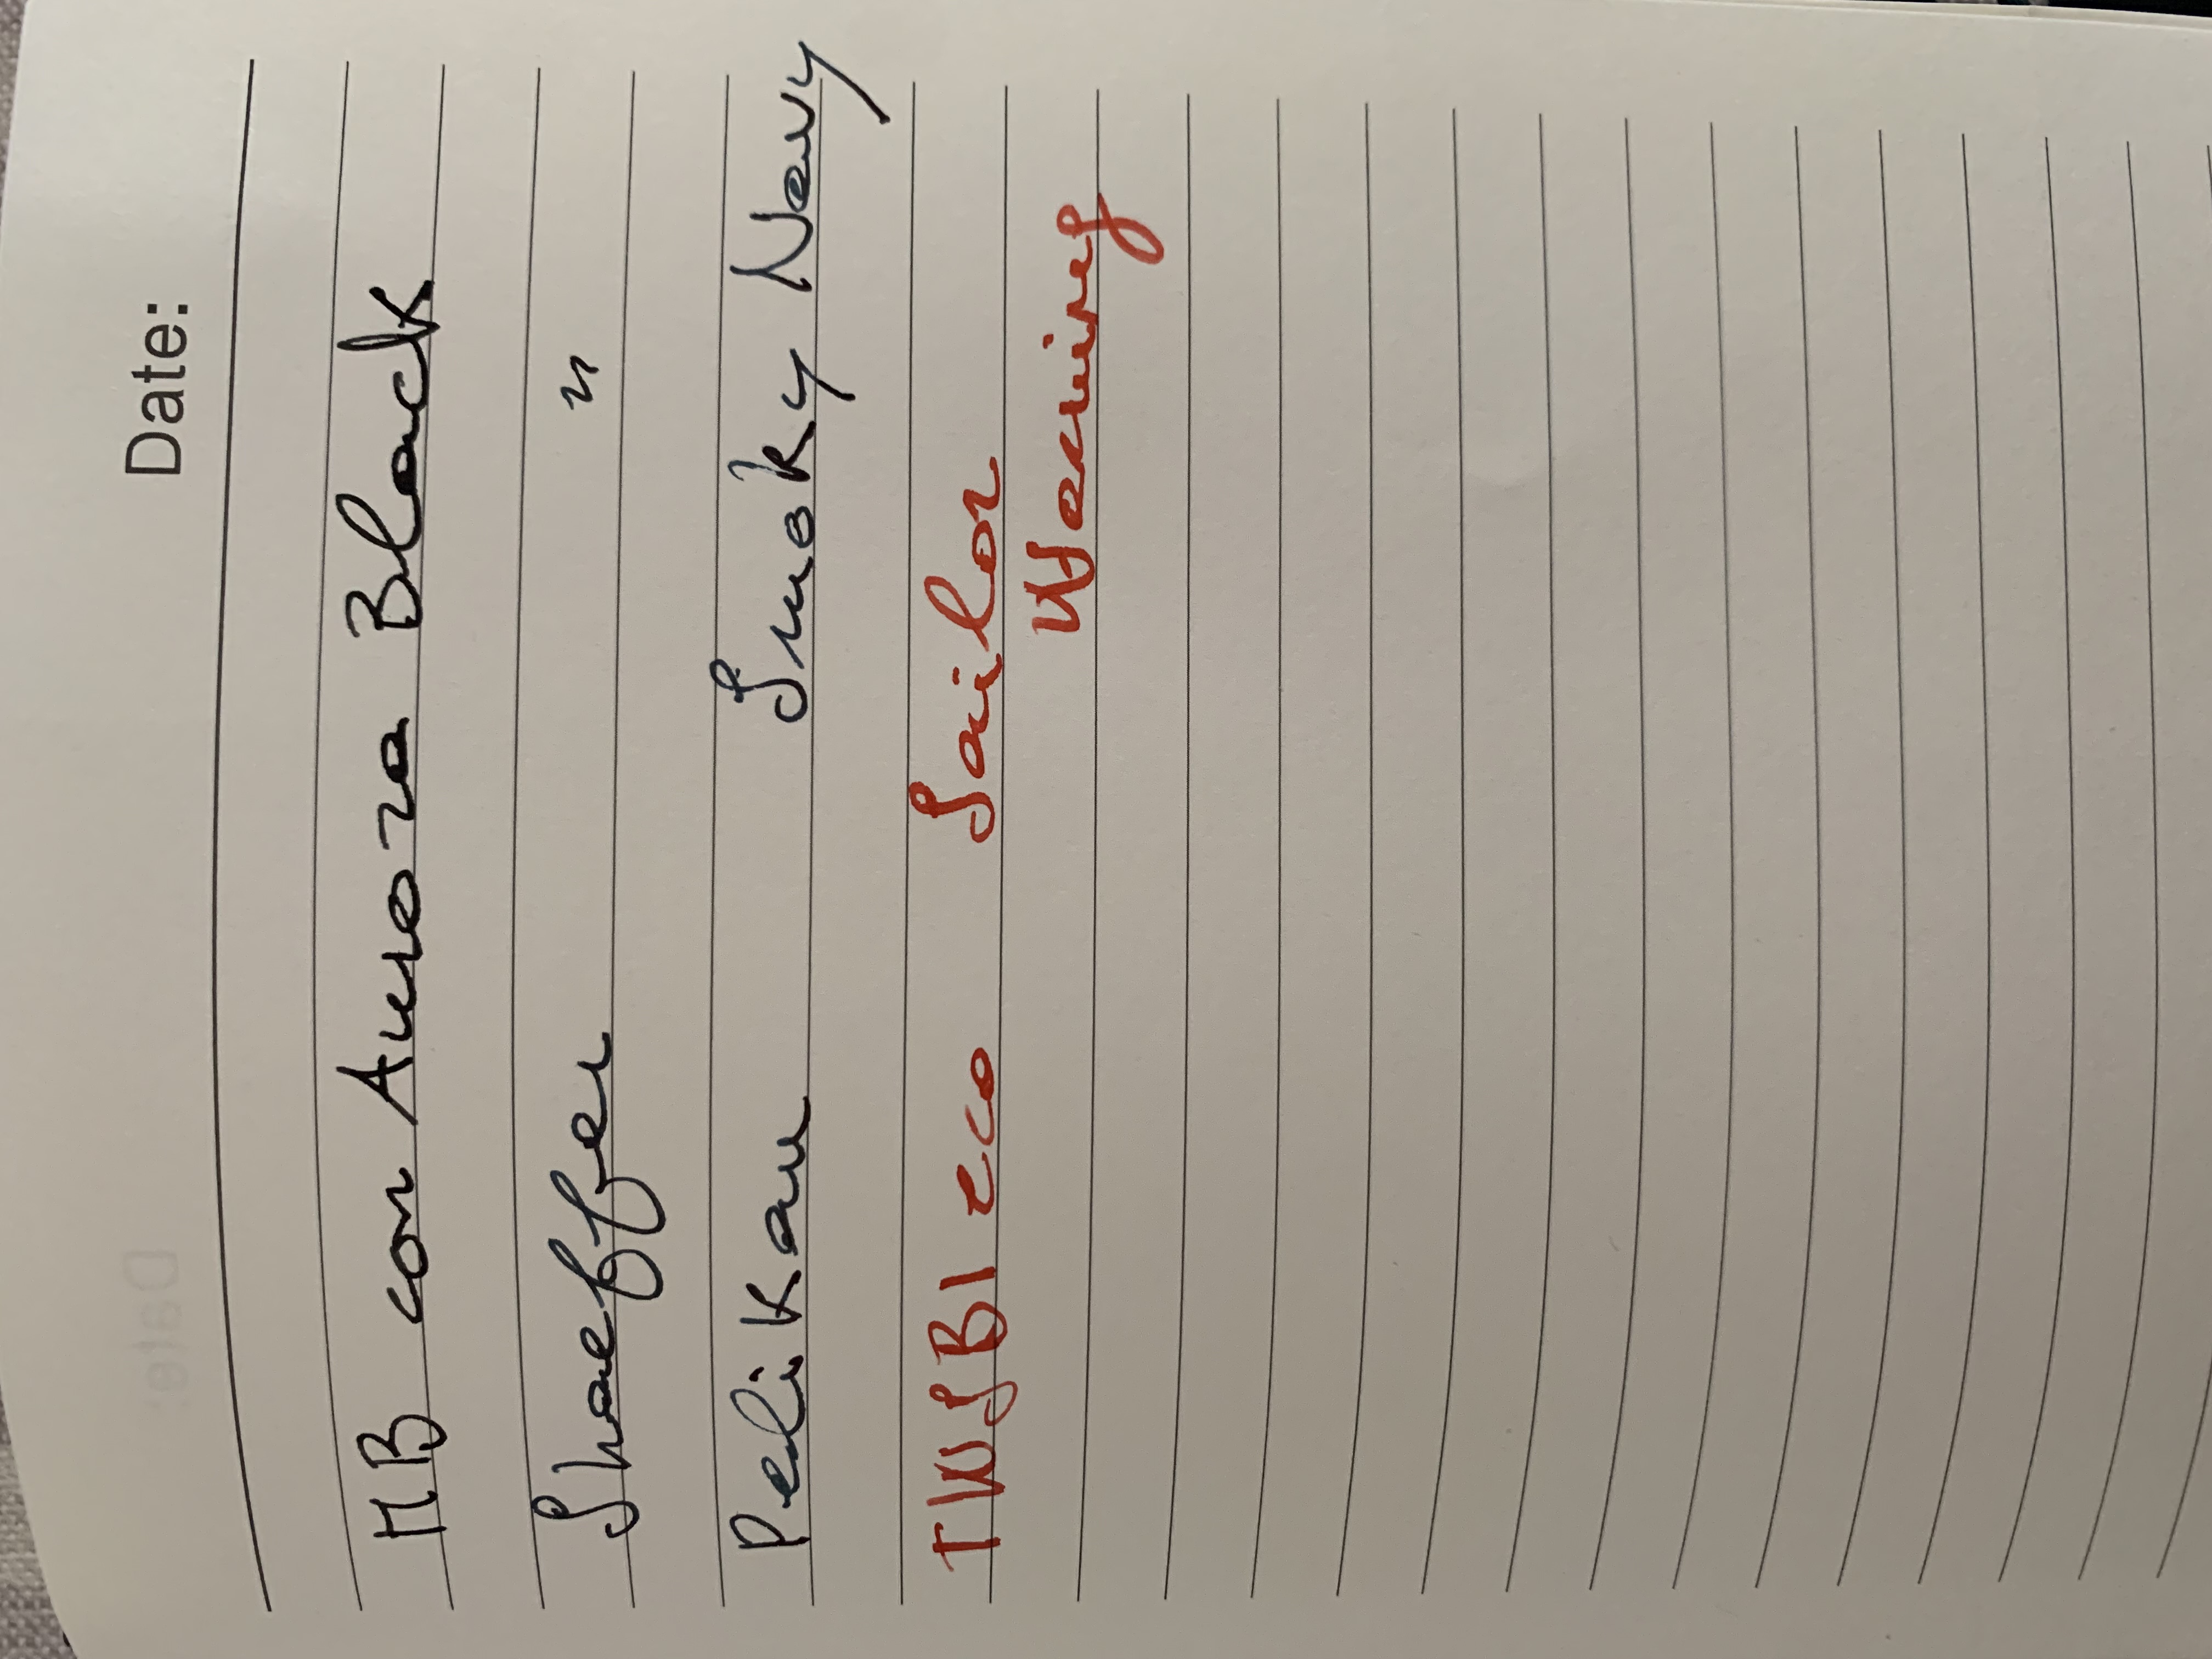 Date:
MB con Aurora Black
Shaeffer "
Pelikan Smoky Navy
TWSBI eco Sailor